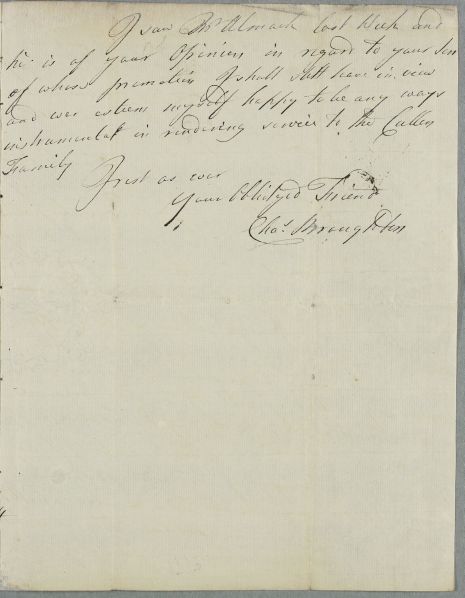 I saw Mr Almack last Week and
he is of your Opinion in regard to your Son
of whose promotion I shall still have in view
and ever esteem myself happy to be any ways
instrumental in rendering service to the Cullen
Family
I rest as ever
Your Obliged Friend
Chas. Broughton